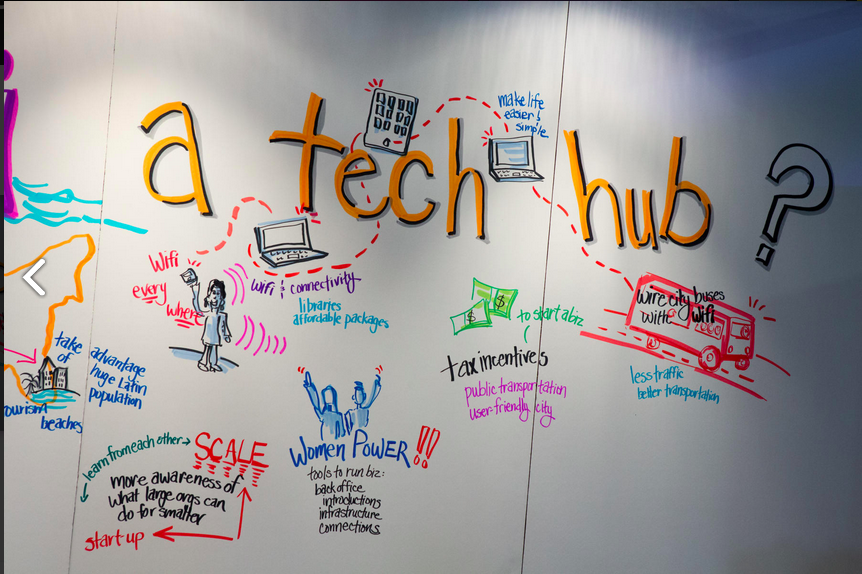 a tech hub?
make life
easier &
simple
Wifi
every
where
wifi & connectivity
libraries
affordable packages
$
$
to start a biz
tax incentives
public transportation
user-friendly city
wire city buses
with Wifi
less traffic
better transportation
take
of
advantage
huge Latin
population
tourism
beaches
learn from each other
SCALE
more awareness of
what large orgs can
do for smaller
start-up
WOMEN POWER!!
tools to run biz:
back office
introductions
infrastructure
connections